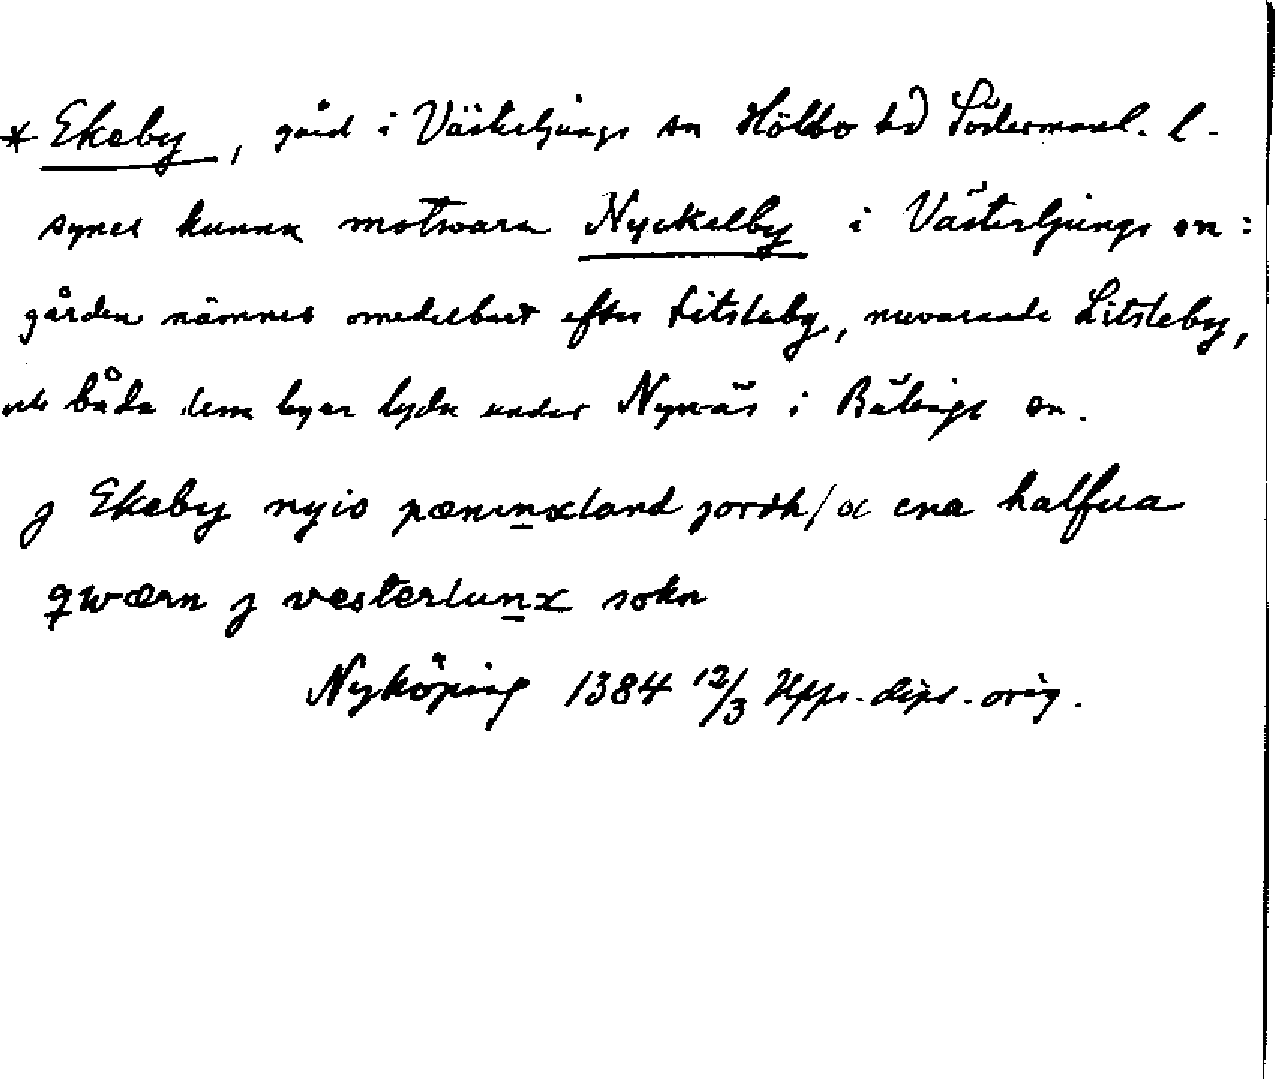 * Ekeby, gård i Västerljungs sn Hölbo hd Södermanl. l.
synes kunna motsvara Nyckelby i Västerljungs sn:
gården nämnes omedelbart efter Litsleby, nuvarande Litsleby,
och båda dem byar lyda under Nynäs i Bälinge sn.
j Ekeby nyio pæninxland jordh / oc ena halfua
qwærn j vesterlunx sokn
Nyköping 1384 12/3 Upps. dipl. orig.